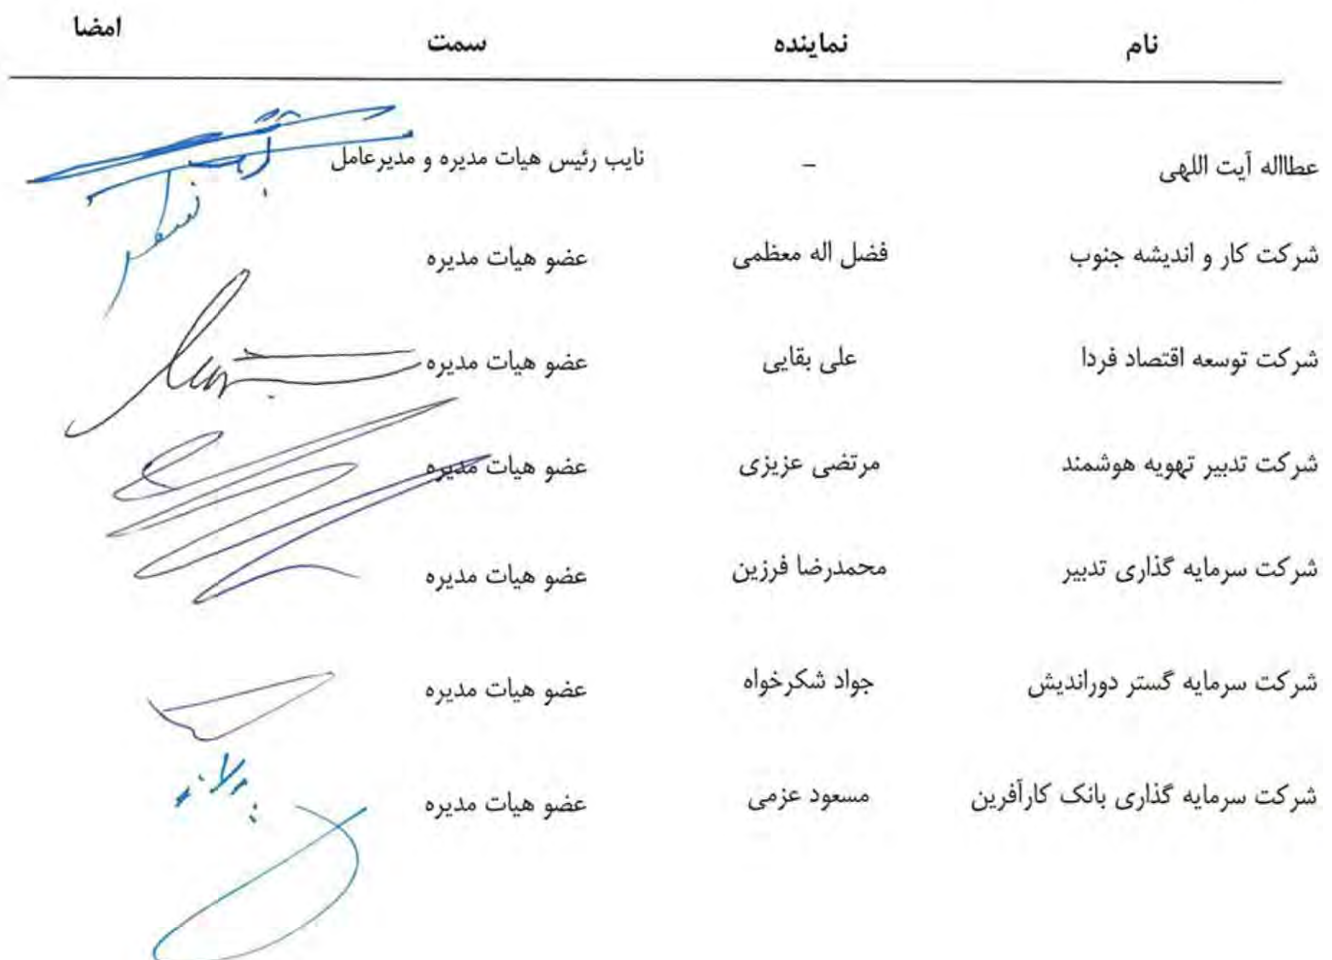 نام نماینده سمت امضا
عطااله آیت اللهی – نایب رئیس هیات مدیره و مدیرعامل
شرکت کار و اندیشه جنوب فضل اله معظمی عضو هیات مدیره
شرکت توسعه اقتصاد فردا علی بقایی عضو هیات مدیره
شرکت تدبیر تهویه هوشمند مرتضی عزیزی عضو هیات مدیره
شرکت سرمایه گذاری تدبیر محمدرضا فرزین عضو هیات مدیره
شرکت سرمایه گستر دوراندیش جواد شکرخواه عضو هیات مدیره
شرکت سرمایه گذاری بانک کارآفرین مسعود عزمی عضو هیات مدیره